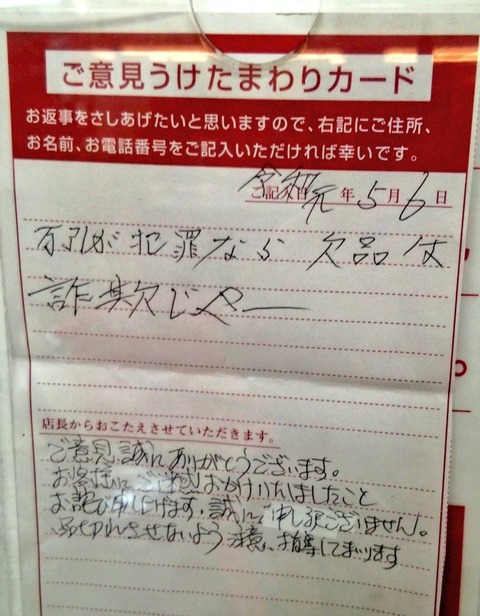 ご意見うけたまわりカード
お返事をさしあげたいと思いますので、右記にご住所、
お名前、お電話番号をご記入いただければ幸いです。
ご記入日 令和元年5月6日
万引が犯罪なら 欠品は
詐欺じゃー
店長からおこたえさせていただきます。
ご意見、誠にありがとうございます。
お客様にご迷惑おかけいたしましたこと
お詫び申し上げます。誠に申し訳ございません。
品切れさせないよう注意、指導してまいります